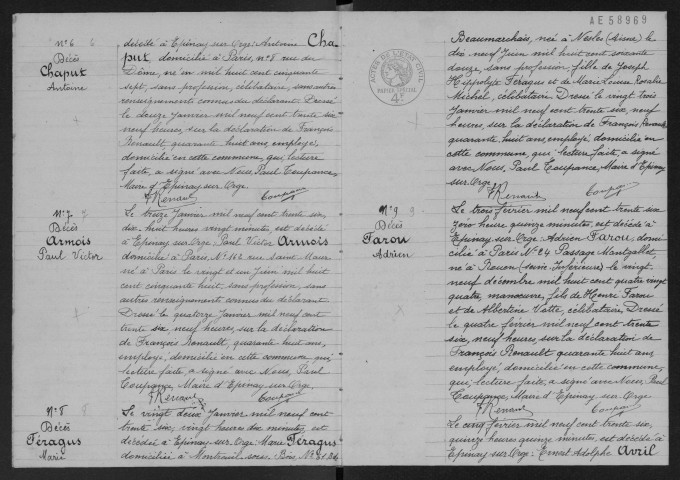 N° 6 6
Décès
Chaput
Antoine
décédé à Epinay sur Orge : Antoine Cha
put, domicilié à Paris, n° 8 rue du
Dôme, né en mil huit cent cinquante
sept, sans profession, célibataire, sans autres
renseignements connus du déclarant. Dressé
le douze Janvier mil neuf cent trente six
neuf heures, sur la déclaration de François
Renault, quarante huit ans, employé,
domicilié en cette commune, qui, lecture
faite, a signé avec Nous, Paul Coupance,
Maire d'Epinay sur Orge.
F Renault Coupance
N° 7 7
Décès
Armois
Paul Victor
Le treize Janvier mil neuf cent trente six,
dix huit heures vingt minutes, est décédé
à Epinay sur Orge Paul Victor Armois
domicilié à Paris, N° 162 rue Saint Maur
né à Paris le vingt et un Juin mil huit
cent cinquante huit, sans profession, sans
autres renseignements connus du déclarant
Dressé le quatorze Janvier mil neuf cent
trente six, neuf heures, sur la déclaration
de François Renault, quarante huit ans,
employé, domicilié en cette commune, qui
lecture faite, a signé avec Nous, Paul
Coupance, Maire d'Epinay sur Orge.
F Renault Coupance
N° 8 8
Décès
Féragus
Marie
Le vingt deux Janvier mil neuf cent
trente six, vingt heures dix minutes, est
décédée à Epinay sur Orge : Marie Féragus
domiciliée à Montreuil sous Bois, N°
AE 58969
ACTES DE L'ETAT CIVIL
PAPIER SPECIAL
4F
Beaumarchais, née à Nesles (Aisne) le
dix neuf Juin mil huit cent soixante
douze, sans profession, fille de Joseph
Hippolyte Féragus et de Marie Louise Rosalie
Michel, célibataire. Dressé le vingt trois
Janvier mil neuf cent trente six, neuf
heures, sur la déclaration de François Renault
quarante huit ans, employé, domicilié en
cette commune, qui, lecture faite, a signé
avec Nous, Paul Coupance, Maire d'Epinay
sur Orge.
F Renault Coupance
N° 9 9
Décès
Farou
Adrien
Le trois février mil neuf cent trente six
zéro heure quinze minutes, est décédé à
Epinay sur Orge Adrien Farou, domi
cilié à Paris N° 24 Passage Montgallet,
né à Rouen (Seine Inférieure) le vingt
neuf décembre mil huit cent quatre vingt
quatre, manoeuvre, fils de Henri Farou
et de Albertine Vatte, célibataire. Dressé
le quatre février mil neuf cent trente
six, neuf heures, sur la déclaration de
François Renault quarante huit ans,
employé, domicilié en cette commune,
qui, lecture faite, a signé avec Nous, Paul
Coupance, Maire d'Epinay sur Orge
F Renault Coupance
Le cinq février mil neuf cent trente six,
quinze heures quinze minutes, est décédé à
Epinay sur Orge : Ernest Adolphe Avril